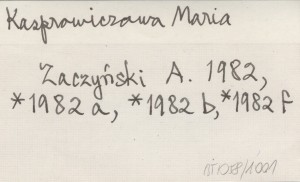 Kasprowiczowa Maria
Zaczyński A. 1982,
*1982 a, *1982 b, *1982 f